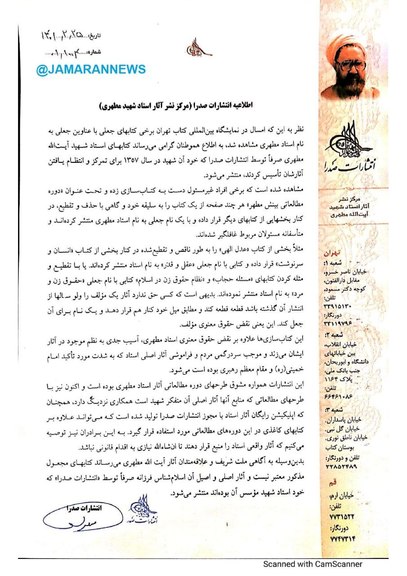 تاریخ: ۱۴۰۱,۲,۲۵
شماره:
@JAMARANNEWS
اطلاعیه انتشارات صدرا (مرکز نشر آثار استاد شهید مطهری)
نظر به این که امسال در نمایشگاه بین‌المللی کتاب تهران برخی کتابهای جعلی با عناوین جعلی به
نام استاد مطهری مشاهده شده، به اطلاع هموطنان گرامی می‌رساند کتابهای استاد شهید آیت‌الله
مطهری صرفاً توسط انتشارات صدرا که خود آن شهید در سال ۱۳۵۷ برای تمرکز و انتظام یافتن
آثارشان تأسیس کردند، منتشر می‌شود.
مشاهده شده است که برخی افراد غیرمسئول دست به کتاب‌سازی زده و تحت عنوان «دوره
مطالعاتی بینش مطهر» هر چند صفحه از یک کتاب را به سلیقه خود و گاهی با حذف و تقطیع، در
کنار بخشهایی از کتابهای دیگر قرار داده و با یک نام جعلی به نام استاد مطهری منتشر کرده‌اند و
متأسفانه مسئولان مربوط غافلگیر شده‌اند.
مثلاً بخشی از کتاب «عدل الهی» را به طور ناقص و تقطیع‌شده در کنار بخشی از کتاب «انسان و
سرنوشت» قرار داده و کتابی با نام جعلی «عقل و قدر» به نام استاد منتشر کرده‌اند یا با تقطیع و
مثله کردن کتابهای «مسئله حجاب» و «نظام حقوق زن در اسلام» کتابی با نام جعلی «حقوق زن و
مرد» به نام استاد منتشر نموده‌اند. بدیهی است که کسی حق ندارد آثار یک مؤلف را ولو سالها از
انتشار آن گذشته باشد قطعه قطعه کند و مطابق میل خود کنار هم قرار دهد و یک نام برای آن
جعل کند. این یعنی نقض حقوق معنوی مؤلف.
این کتاب‌سازی‌ها علاوه بر نقض حقوق معنوی استاد، آسیب جدی به نظم موجود در آثار
ایشان می‌زند و موجب سردرگمی مردم و فراموشی آثار اصلی استاد که به شدت مورد تأکید امام
خمینی(ره) و مقام معظم رهبری بوده است می‌شود.
این انتشارات همواره مشوق طرحهای دوره مطالعاتی آثار استاد مطهری بوده است و اکنون نیز با
طرحهای مطالعاتی که منابع آنها آثار اصلی آن متفکر شهید است همکاری نزدیک دارد، همچنان
که اپلیکیشن رایگان آثار استاد با مجوز انتشارات صدرا تولید شده است که می‌تواند علاوه بر
کتابهای کاغذی در این دوره‌های مطالعاتی مورد استفاده قرار گیرد. به این برادران نیز توصیه
می‌کنیم که آثار واقعی استاد را منبع قرار دهند تا ان‌شاءالله نیازی به اقدام قانونی نباشد.
بدین‌وسیله به آگاهی ملت شریف و علاقه‌مندان آثار آیت الله مطهری می‌رساند کتابهای مجعول
مذکور معتبر نیست و آثار اصلی و اصیل آن اسلام‌شناس فرزانه صرفاً توسط «انتشارات صدرا» که
خود استاد شهید مؤسس آن بوده‌اند منتشر می‌شود.
انتشارات صدرا
انتشارات صدرا
مرکز نشر
آثار استاد شهید
آیت‌الله مطهری
تهران
شعبه ۱:
خیابان ناصر خسرو،
مقابل دارالفنون،
کوچه دکتر مسعود،
تلفن:
۳۳۹۱۵۱۳۰
دورنگار:
۳۳۱۱۹۷۹۶
شعبه ۲:
خیابان انقلاب،
بین خیابانهای
دانشگاه و ابوریحان،
جنب بانک ملی،
پلاک ۱۱۶۴
تلفن:
۶۶۴۶۱۰۸۶
شعبه ۳:
خیابان پاسداران،
خیابان گل نبی،
خیابان ناطق نوری،
بوستان کتاب
تلفن و دورنگار:
۲۲۸۵۲۴۸۹
قم
خیابان ارم،
تلفن:
۷۷۳۱۵۲۲
دورنگار:
۷۷۴۷۳۱۴
Scanned with CamScanner